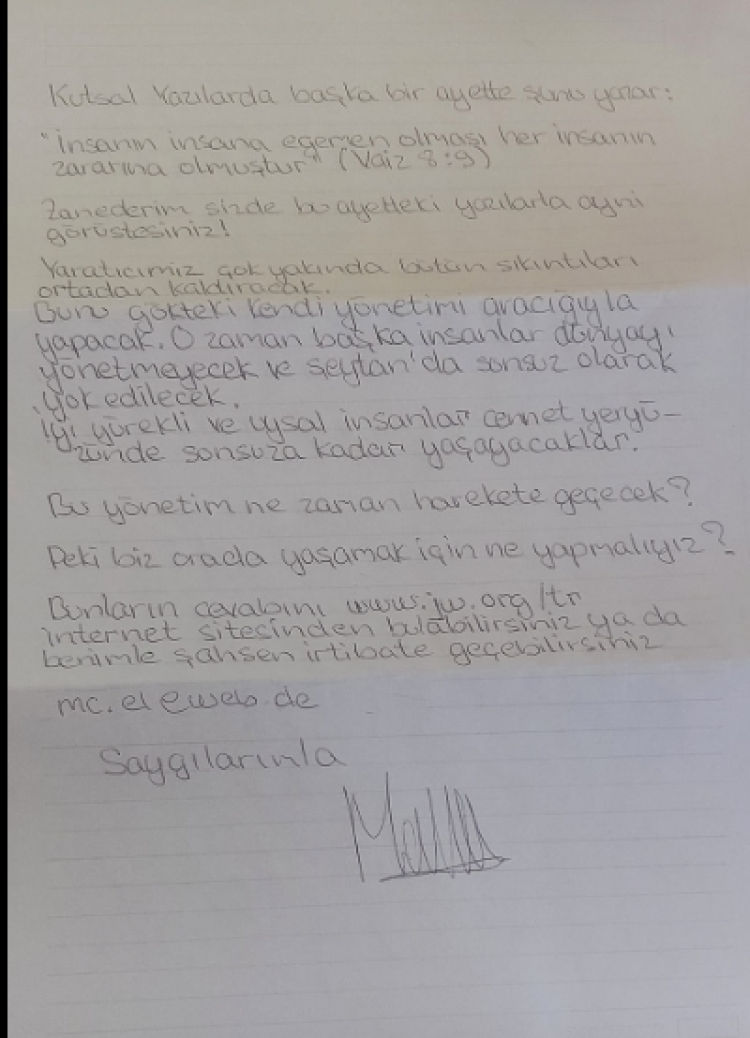 Kutsal Yazılarda başka bir ayette şunu yazar:
"İnsanın insana egemen olması her insanın
zararına olmuştur" (Vaiz 8:9)
Zanederim sizde bu ayetteki yazılarla ayni
görüştesiniz!
Yaratıcımız çok yakında bütün sıkıntıları
ortadan kaldıracak.
Bunu gökteki kendi yönetimi aracığıyla
yapacak. O zaman başka insanlar dünyayı
yönetmeyecek ve şeytan'da sonsuz olarak
yok edilecek.
İyi yürekli ve uysal insanlar cennet yeryü-
zünde sonsuza kadar yaşayacaklar.
Bu yönetim ne zaman harekete geçecek?
Peki biz orada yaşamak için ne yapmalıyız?
Bunların cevabını www.jw.org/tr
internet sitesinden bulabilirsiniz ya da
benimle şahsen irtibate geçebilirsiniz
mc.el@web.de
Saygılarımla